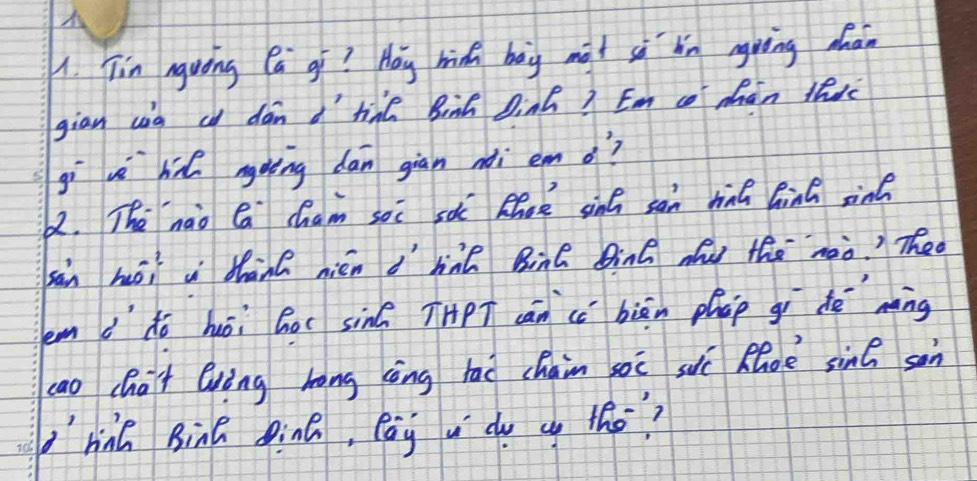 1. Tín ngưỡng là gì? Hãy trình bày một số tín ngưỡng nhân
gian của cư dân ở tỉnh Bình Định? Em có nhận thức
gì về tính ngưỡng dân gian nơi em ở?
2. Thế nào là chăm sóc sức khỏe sinh sản hình sinh
sản tuổi vị thành niên ở tỉnh Bình Định như thế nào? Theo
em ở độ tuổi học sinh THPT cần có biện pháp gì để nâng
cao chất lượng trong công tác chăm sóc sức khỏe sinh sản
ở tỉnh Bình Định, lấy ví dụ cụ thể?